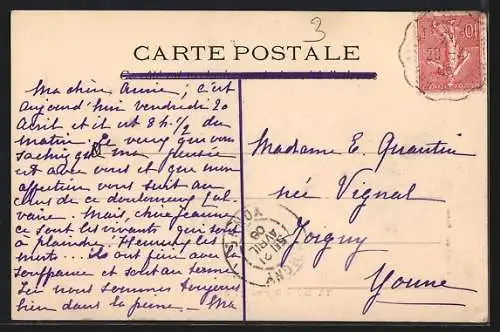 3
CARTE POSTALE
Ma chère Annie, c'est
aujourd'hui vendredi 20
Avril et il est 8h. 1/2 du
matin. Je veux que vous
sachiez que ma pensée
est avec vous et que mon
affection vous suit au
cours de ce douloureux cal-
vaire. Mais, chère Jeanne
ce sont les vivants qui sont
à plaindre. Heureux les
morts... ils ont fini avec
souffrance et sont au terme
Ici nous sommes toujours
bien dans la peine – Ma
Madame E. Quantin
née Vignal
Joigny
Yonne
10
JOIGNY
21
AVRIL
YONNE